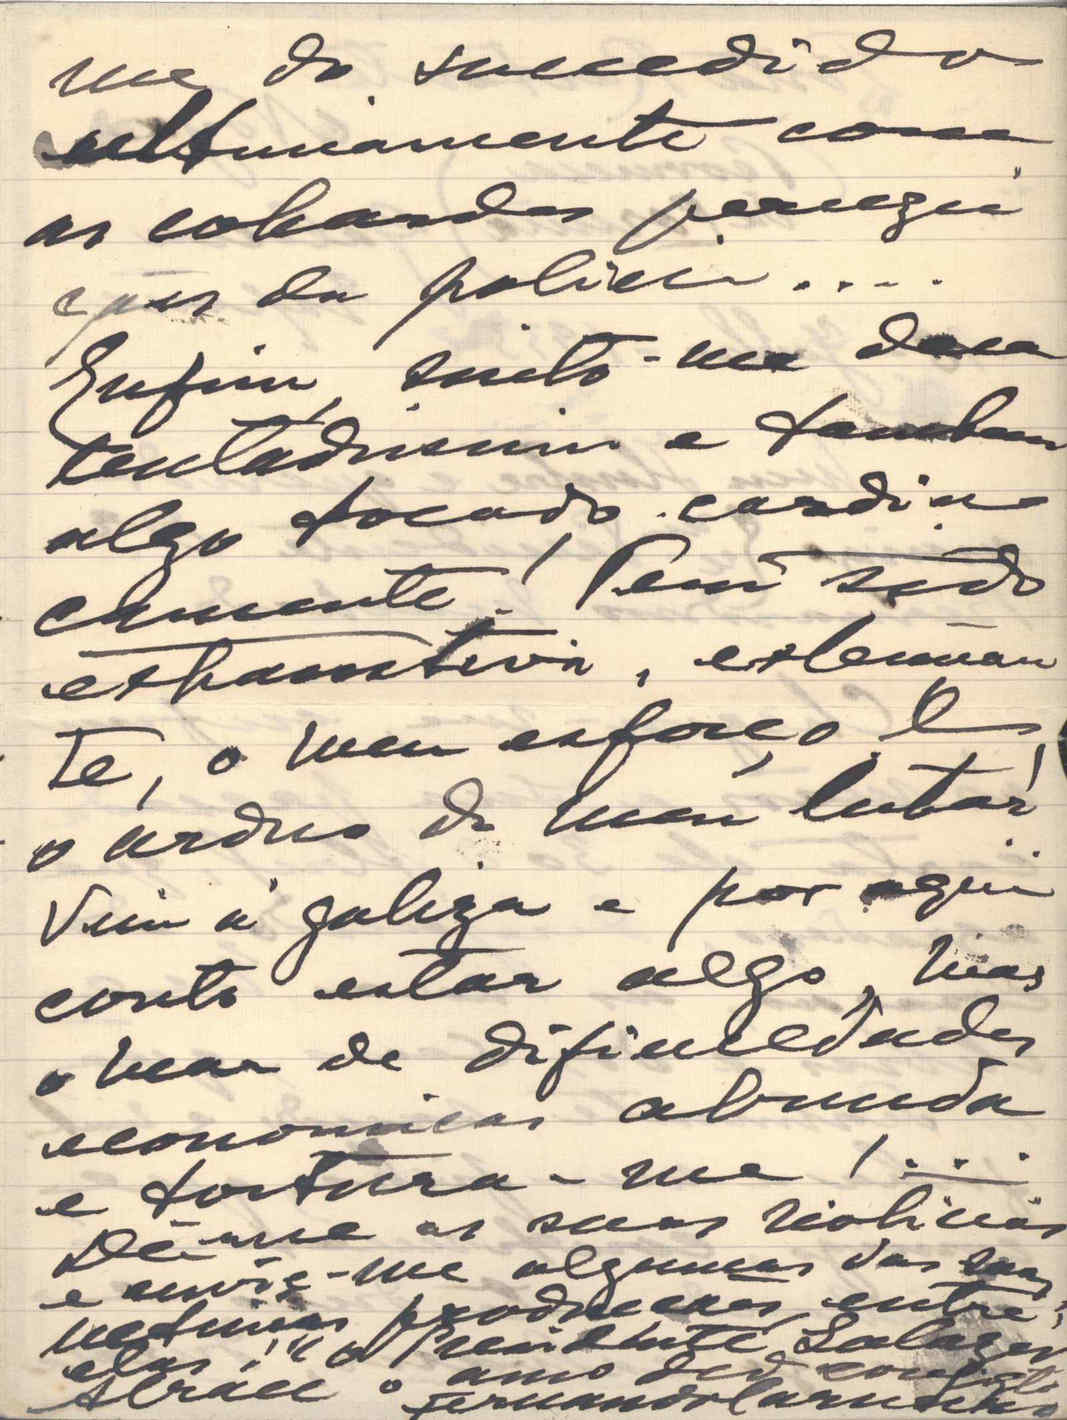 me do sucedido
ultimamente com
as cobardes persegui
ções da policia....
Enfim, sinto-me desa
lentadissimo e tambem
algo tocado cardia
camente! Tem sido
exhaustivo, extenuan
te, o meu esforço! E,
o arduo do meu lutar!
Vim á galiza e por aqui
conto estar algo, mas
o mar de dificuldades
economicas abunda
e tortura-me!...
Dê-me as suas noticias
e envie-me algumas das suas
ultimas producções, entre
elas: "O Presidente Salazar
Abrace o amo ded confrade
Fernando